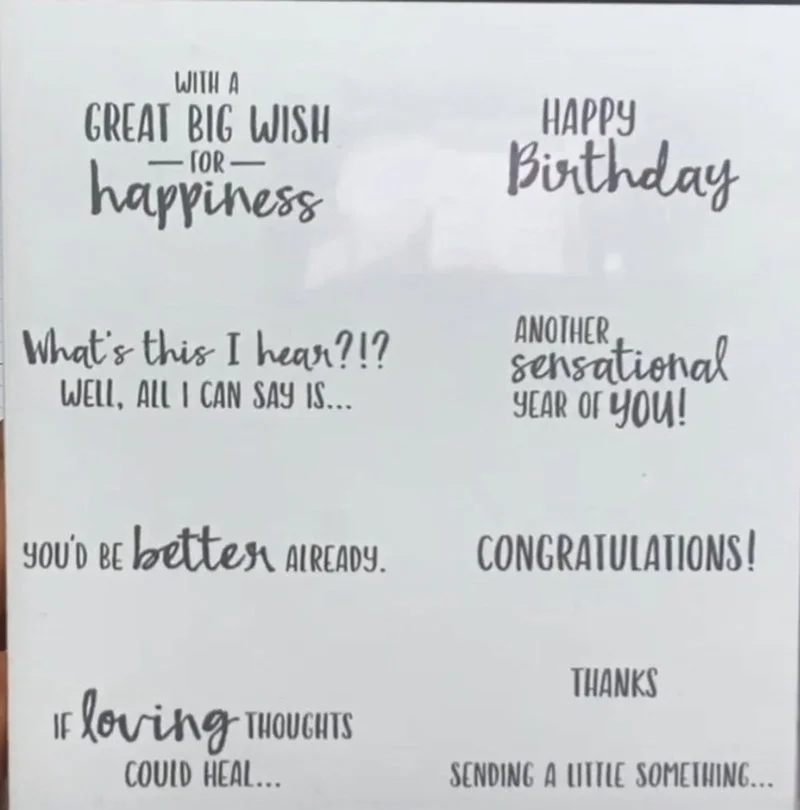 WITH A
GREAT BIG WISH
— FOR —
happiness
HAPPY
Birthday
What's this I hear?!?
WELL, ALL I CAN SAY IS...
ANOTHER
sensational
YEAR OF YOU!
YOU'D BE better ALREADY.
CONGRATULATIONS!
IF loving THOUGHTS
COULD HEAL...
THANKS
SENDING A LITTLE SOMETHING...